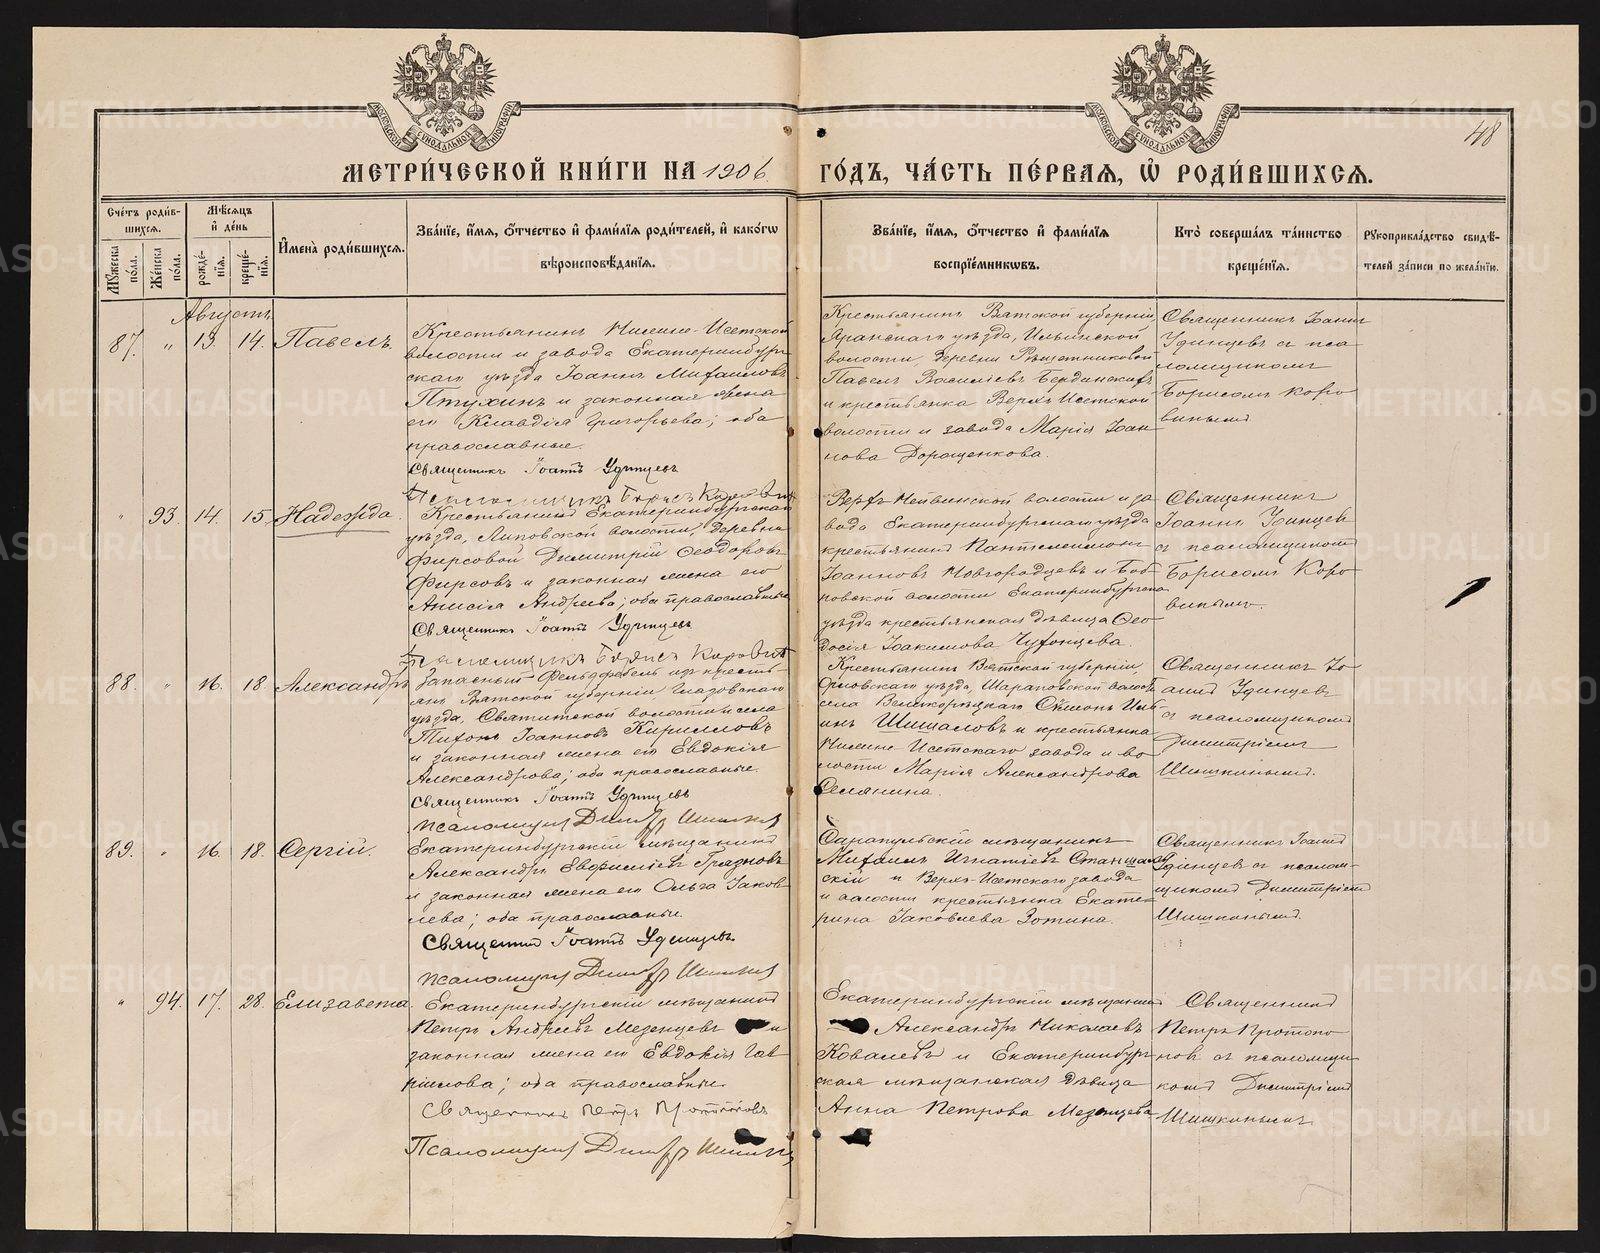 48
МЕТРИ́ЧЕСКОЙ КНИ́ГИ НА 1906 ГО́ДЪ, ЧА́СТЬ ПЕ́РВАЯ, Ѡ҆ РОДИ́ВШИХСЯ.
Сче́тъ роди́в-
шихся.
Мꙋжеска по́ла.
Же́нска по́ла.
Мѣсяцъ
и҆ де́нь
рожде́-
нїя.
креще́-
нїя.
И҆мена̀ роди́вшихся.
Зва́нїе, и҆́мя, ѻ҆́тчество и҆ фами́лїя роди́телей, и҆ како́гѡ
вѣроисповѣ́данїя.
Зва́нїе, и҆́мя, ѻ҆́тчество и҆ фами́лїя
воспрїе́мникѡвъ.
Кто̀ соверша́лъ та́инство
креще́нїя.
Рꙋкоприкла́дство свидѣ́-
телей за́писи по жела́нїю.
Августъ
87. " 13. 14. Павелъ.
Крестьянинъ Нижне-Исетской
волости и завода Екатеринбург-
скаго уѣзда Іоаннъ Михаиловъ
Птухинъ и законная жена
его Клавдія Григорьева; оба
православные.
Священникъ Іоаннъ Удинцевъ
Псаломщикъ Борисъ Коровинъ
Крестьянинъ Вятской губерніи,
Яранскаго уѣзда, Ильинской
волости, деревни Рѣшетниковой
Павелъ Василіевъ Бердинскихъ
и крестьянка Верхъ-Исетской
волости и завода Марія Іоан-
нова Дорощенкова.
Священникъ Іоаннъ
Удинцевъ съ пса-
ломщикомъ
Борисомъ Коро-
винымъ
" 93. 14. 15. Надежда.
Крестьянинъ Екатеринбургскаго
уѣзда, Липовской волости, деревни
Фирсовой Димитрій Ѳеодоровъ
Фирсовъ и законная жена его
Анисія Андреева; оба православные
Священникъ Іоаннъ Удинцевъ
Псаломщикъ Борисъ Коровинъ
Верхъ-Нейвинской волости и за-
вода Екатеринбургскаго уѣзда
крестьянинъ Пантелеимонъ
Іоанновъ Новгородцевъ и Боб-
ровской волости Екатеринбургска
уѣзда крестьянская дѣвица Ѳео-
досія Іоакимова Чухонцева.
Священникъ
Іоаннъ Удинцевъ
съ псаломщикомъ
Борисомъ Коро-
винымъ.
88. " 16. 18. Александръ
Запасный фельдфебель изъ кресть-
янъ Вятской губерніи Глазовскаго
уѣзда, Святитской волости и села
Тихонъ Іоанновъ Кирилловъ
и законная жена его Евдокія
Александрова; оба православные.
Священникъ Іоаннъ Удинцевъ
Псаломщикъ Димитр Шишкинъ
Крестьянинъ Вятской губерніи,
Орловскаго уѣзда, Шараповской волости
села Великорѣцкаго Сѷмеонъ Иль-
инъ Шишаловъ и крестьянка
Нижне-Исетскаго завода и во-
лости Марія Александрова
Селянина.
Священникъ Іо-
аннъ Удинцевъ
съ псаломщикомъ
Димитріемъ
Шишкинымъ.
89. " 16. 18. Сергій.
Екатеринбургскій мѣщанинъ
Александръ Евфиміевъ Грязновъ
и законная жена его Ольга Іаков-
лева; оба православные.
Священникъ Іоаннъ Удинцевъ.
Псаломщикъ Димитр Шишкинъ
Сарапульскій мѣщанинъ
Михаилъ Игнатіевъ
скій и Верхъ-Исетскаго завода
и волости крестьянка Екате-
рина Іаковлева Зотина.
Священникъ Іоаннъ
Удинцевъ съ псалом-
щикомъ Димитріемъ
Шишкинымъ.
" 94. 17. 28. Елизавета.
Екатеринбургскій мѣщанинъ
Петръ Андреевъ Мезенцевъ и
законная жена его Евдокія Гав-
ріилова; оба православные.
Священникъ Петръ Протопоповъ
Псаломщикъ Димитр Шишкинъ
Екатеринбургскій мѣщанинъ
Александръ Николаевъ
Ковалевъ и Екатеринбург-
ская мѣщанская дѣвица
Анна Петрова Мезенцева
Священникъ
Петръ Протопо-
повъ съ псаломщи-
комъ Димитріемъ
Шишкинымъ
METRIKI.GASO-URAL.RU